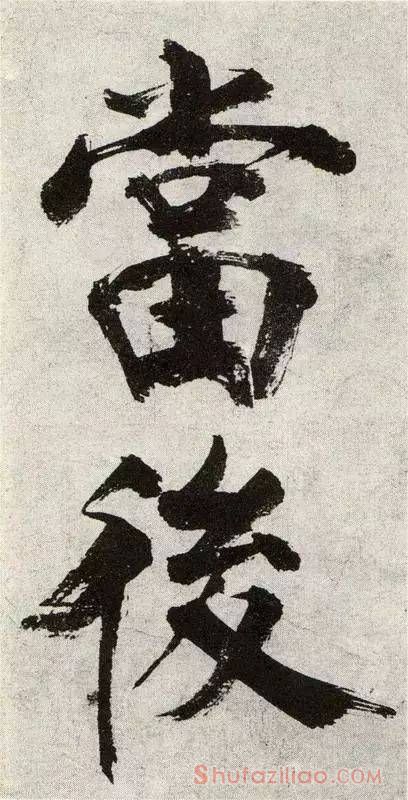 當後
Shufaziliao.com